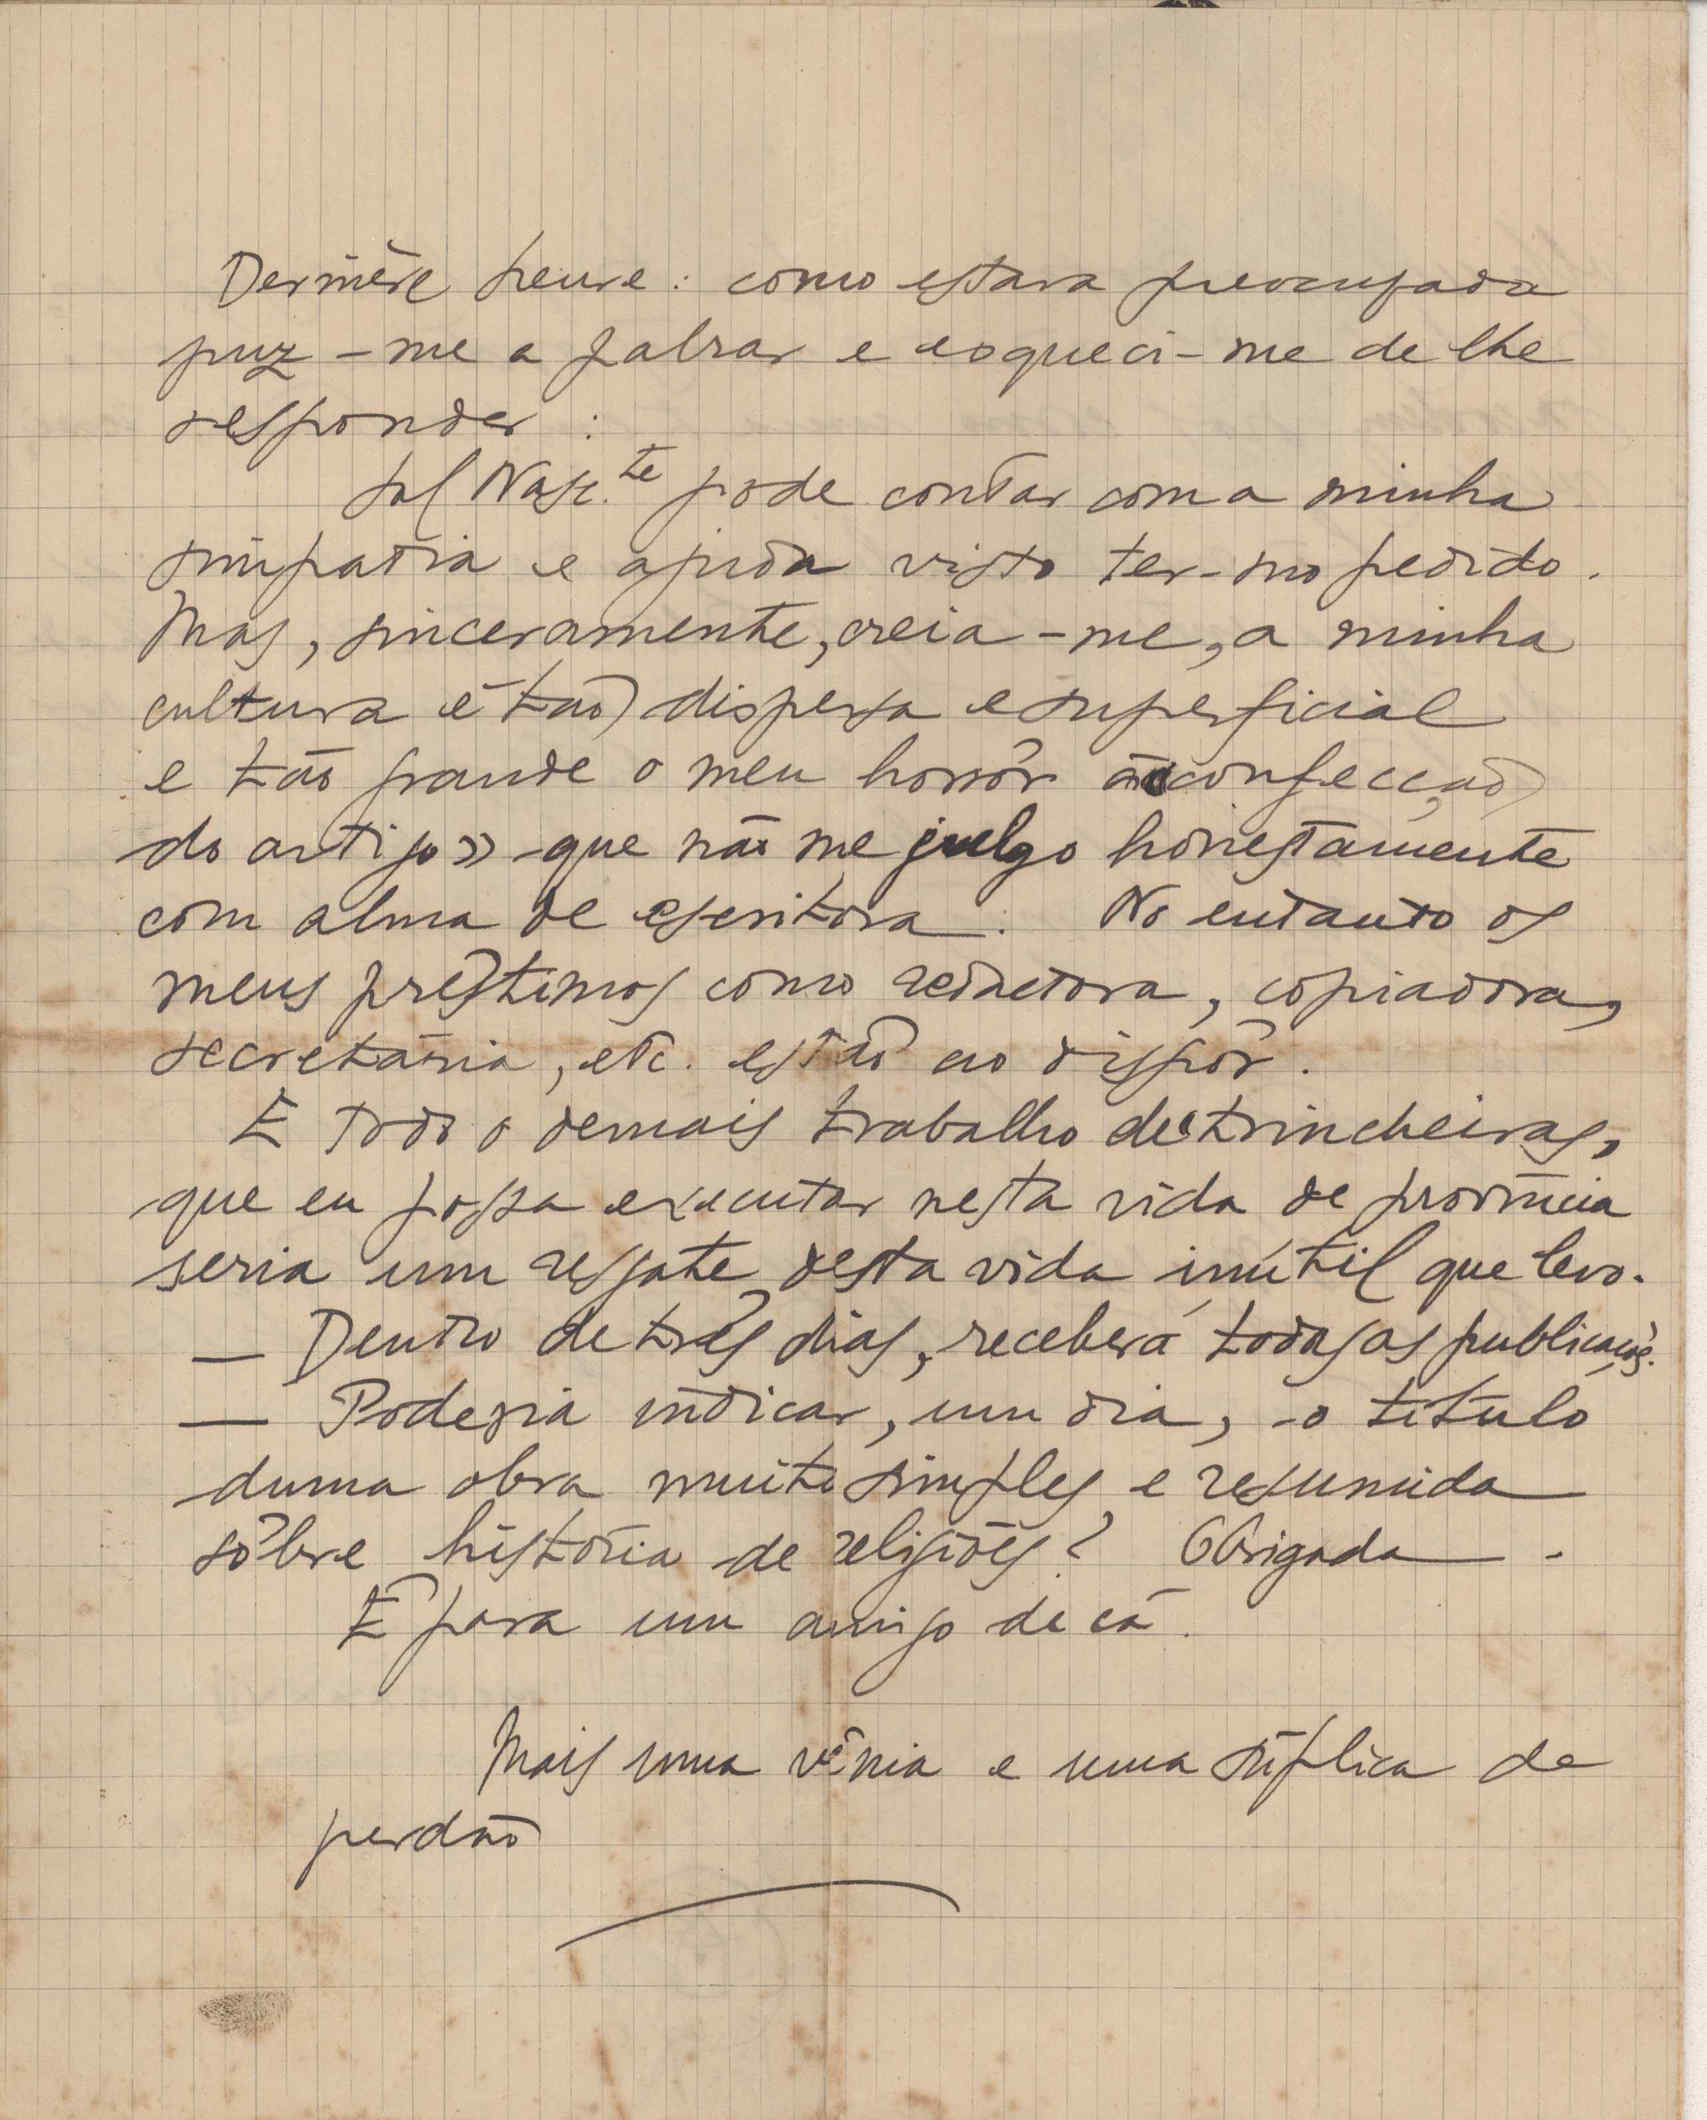 Dernière heure: como estava preocupada
puz-me a palrar e esqueci-me de lhe
responder:
Sol Nasc.te pode contar com a minha
simpatia e ajuda visto ter-mo pedido.
Mas, sinceramente, creia-me, a minha
cultura é tão dispersa e superficial
e tão grande o meu horrôr à confecção
do artigo» que não me julgo honestamente
com alma de escritora. No entanto os
meus préstimos como redactora, copiadora,
secretária, etc. estão ao dispôr.
E todo o demais trabalho de trincheiras,
que eu possa executar nesta vida de província
seria um resgate desta vida inútil que levo.
— Dentro de três dias, receberá todas as publicaçõs.
— Poderia indicar, um dia, o título
duma obra muito simples e resumida
sôbre história de religiões? Obrigada.
É para um amigo de cá.
Mais uma vénia e uma súplica de
perdão